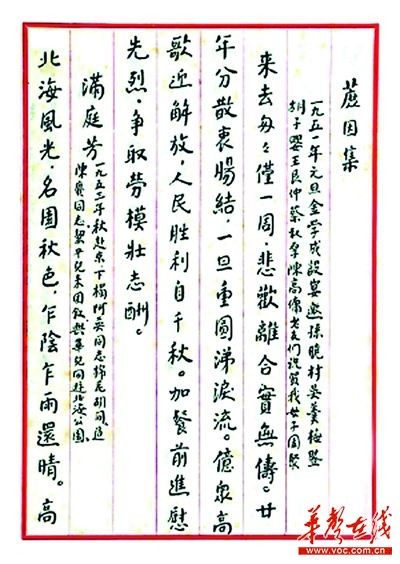 蔗因集
一九五一年元旦金学成設宴邀孫曉村吴羹梅暨
胡子婴王艮仲蔡承孚陳高傭老友們祝賀我母子团聚
来去匆々僅一周．悲歡離合實無儔。廿
年分散衷腸結．一旦重圓涕淚流。億衆高
歌迎解放．人民胜利自千秋。加餐前進慰
先烈．争取勞模壯志酬。
滿庭芳
一九五三年秋赴京下榻阿英同志棉花胡同．適
同志挈平兒来同敘與華兒同遊北海公園
北海風光．名園秋色．乍陰乍雨還晴。高
華聲在线
www.voc.com.cn